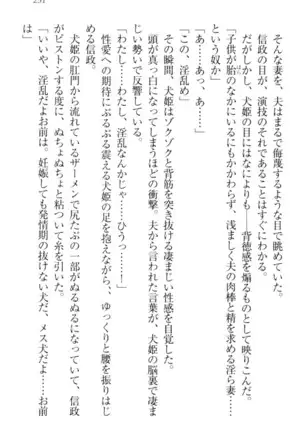 そんな妻を、夫はまるで侮蔑するような目で眺めていた。
信政の目が、演技のそれであることはすぐにわかる。
だがしかし、犬姫の目にはなによりも――背徳感を煽るものとして映りこんだ。
「子供が胎のなかにいるにもかかわらず、浅ましく夫の肉棒と精を求める淫ら妻……
という奴か」
「あ……あっ、あ……」
「この、淫乱」
その瞬間、犬姫はゾクゾクと背筋を突き抜ける凄まじい性感を自覚した。
頭が真っ白になってしまうほどの衝撃。夫から言われた言葉が、犬姫の脳裏で凄ま
じい勢いで反響している。
「わたし……わたし、淫乱なんかじゃ……ひうっ……！」
性愛への期待にぶるぶる震える犬姫の足を抱えながら、ゆっくりと腰を振りはじ
める信政。
犬姫の肛門から流れているザーメンで尻たぶの一部がぬるぬるになっていて、信政
がピストンする度に、ぬちょぬちょと粘ついて糸を引いた。
「いいや、淫乱だよお前は。妊娠しても発情期の抜けない犬だ、メス犬だよ……お前
は」